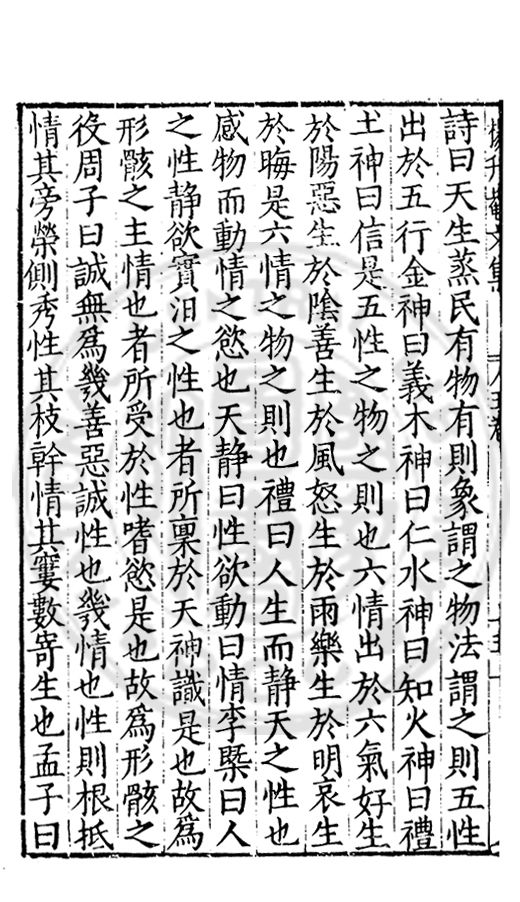 詩曰天生蒸民有物有則象謂之物法謂之則五性
出於五行金神曰義木神曰仁水神曰知火神曰禮
土神曰信是五性之物之則也六情出於六氣好生
於陽惡生於陰善生於風怒生於雨樂生於明哀生
於晦是六情之物之則也禮曰人生而靜天之性也
感物而動情之慾也天靜曰性欲動曰情李槩曰人
之性靜欲實汨之性也者所稟於天神識是也故為
形骸之主情也者所受於性嗜慾是也故為形骸之
役周子曰誠無為幾善惡誠性也幾情也性則根柢
情其旁榮側秀性其枝幹情其寠數寄生也孟子曰